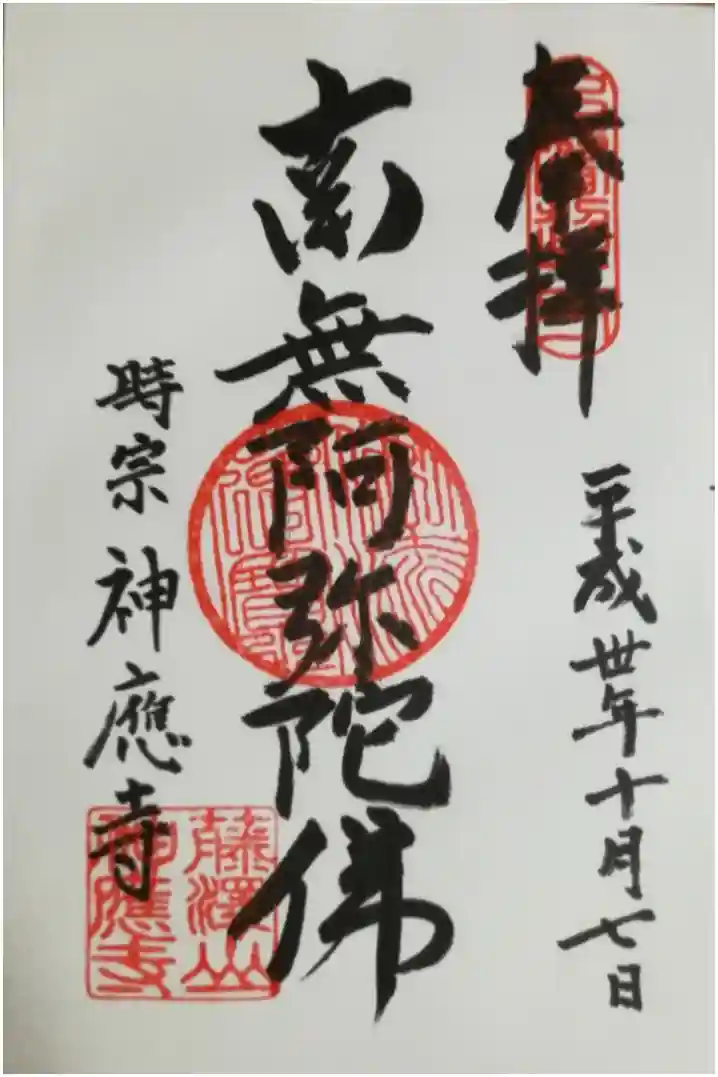 奉拝
平成卅年十月七日
南無阿弥陀佛
時宗 神應寺
藤澤山
神應寺